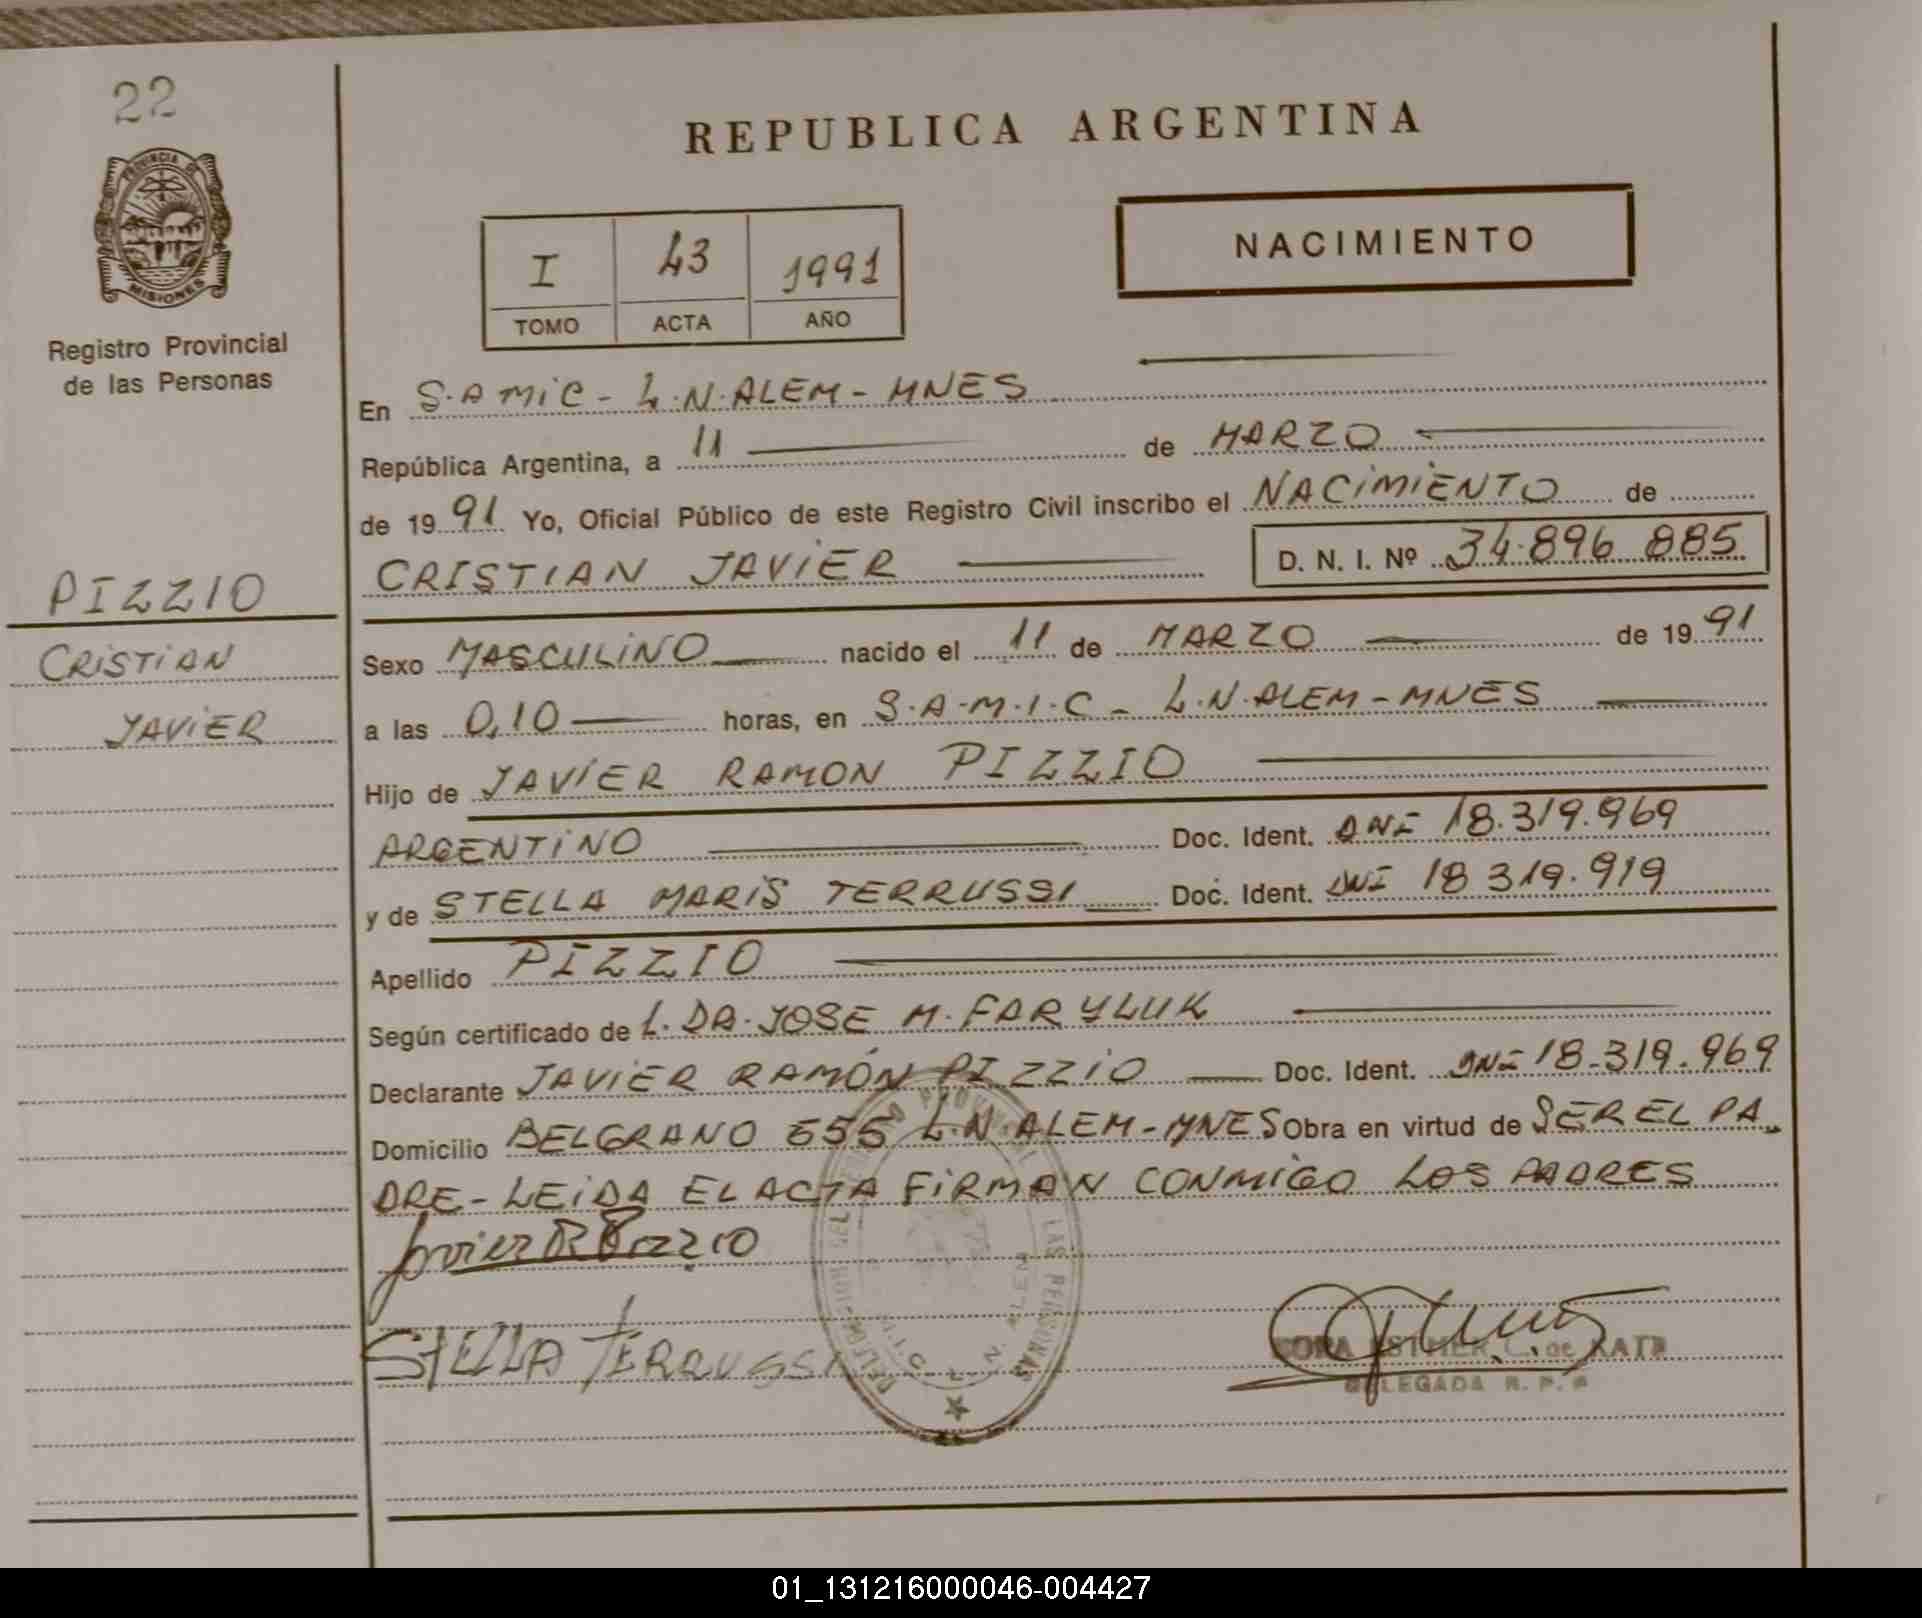 22
PROVINCIA DE
MISIONES
Registro Provincial
de las Personas
PIZZIO
CRISTIAN
JAVIER
REPUBLICA ARGENTINA
I 43 1991
TOMO ACTA AÑO
NACIMIENTO
En S.A MIC - L.N.ALEM - MNES
República Argentina, a 11 de MARZO
de 1991 Yo, Oficial Público de este Registro Civil inscribo el NACIMIENTO de
CRISTIAN JAVIER D. N. I. Nº 34.896 885
Sexo MASCULINO nacido el 11 de MARZO de 1991
a las 0,10 horas, en S.A.M.I.C - L.N.ALEM - MNES
Hijo de JAVIER RAMON PIZZIO
ARGENTINO Doc. Ident. DNI 18.319.969
y de STELLA MARIS TERRUSSI Doc. Ident. DNI 18 319.919
Apellido PIZZIO
Según certificado de L. DR. JOSE M. FARYLUK
Declarante JAVIER RAMÓN PIZZIO Doc. Ident. DNI 18.319.969
Domicilio BELGRANO 555 L.N ALEM - MNES Obra en virtud de SER EL PA
DRE - LEIDA EL ACTA FIRMAN CONMIGO LOS PADRES
Javier R Pizzio
STELLA TERRUSSI
ESTHER C. de
DELEGADA R. P. P
LAS PERSONAS
L. N. ALEM
01_131216000046-004427